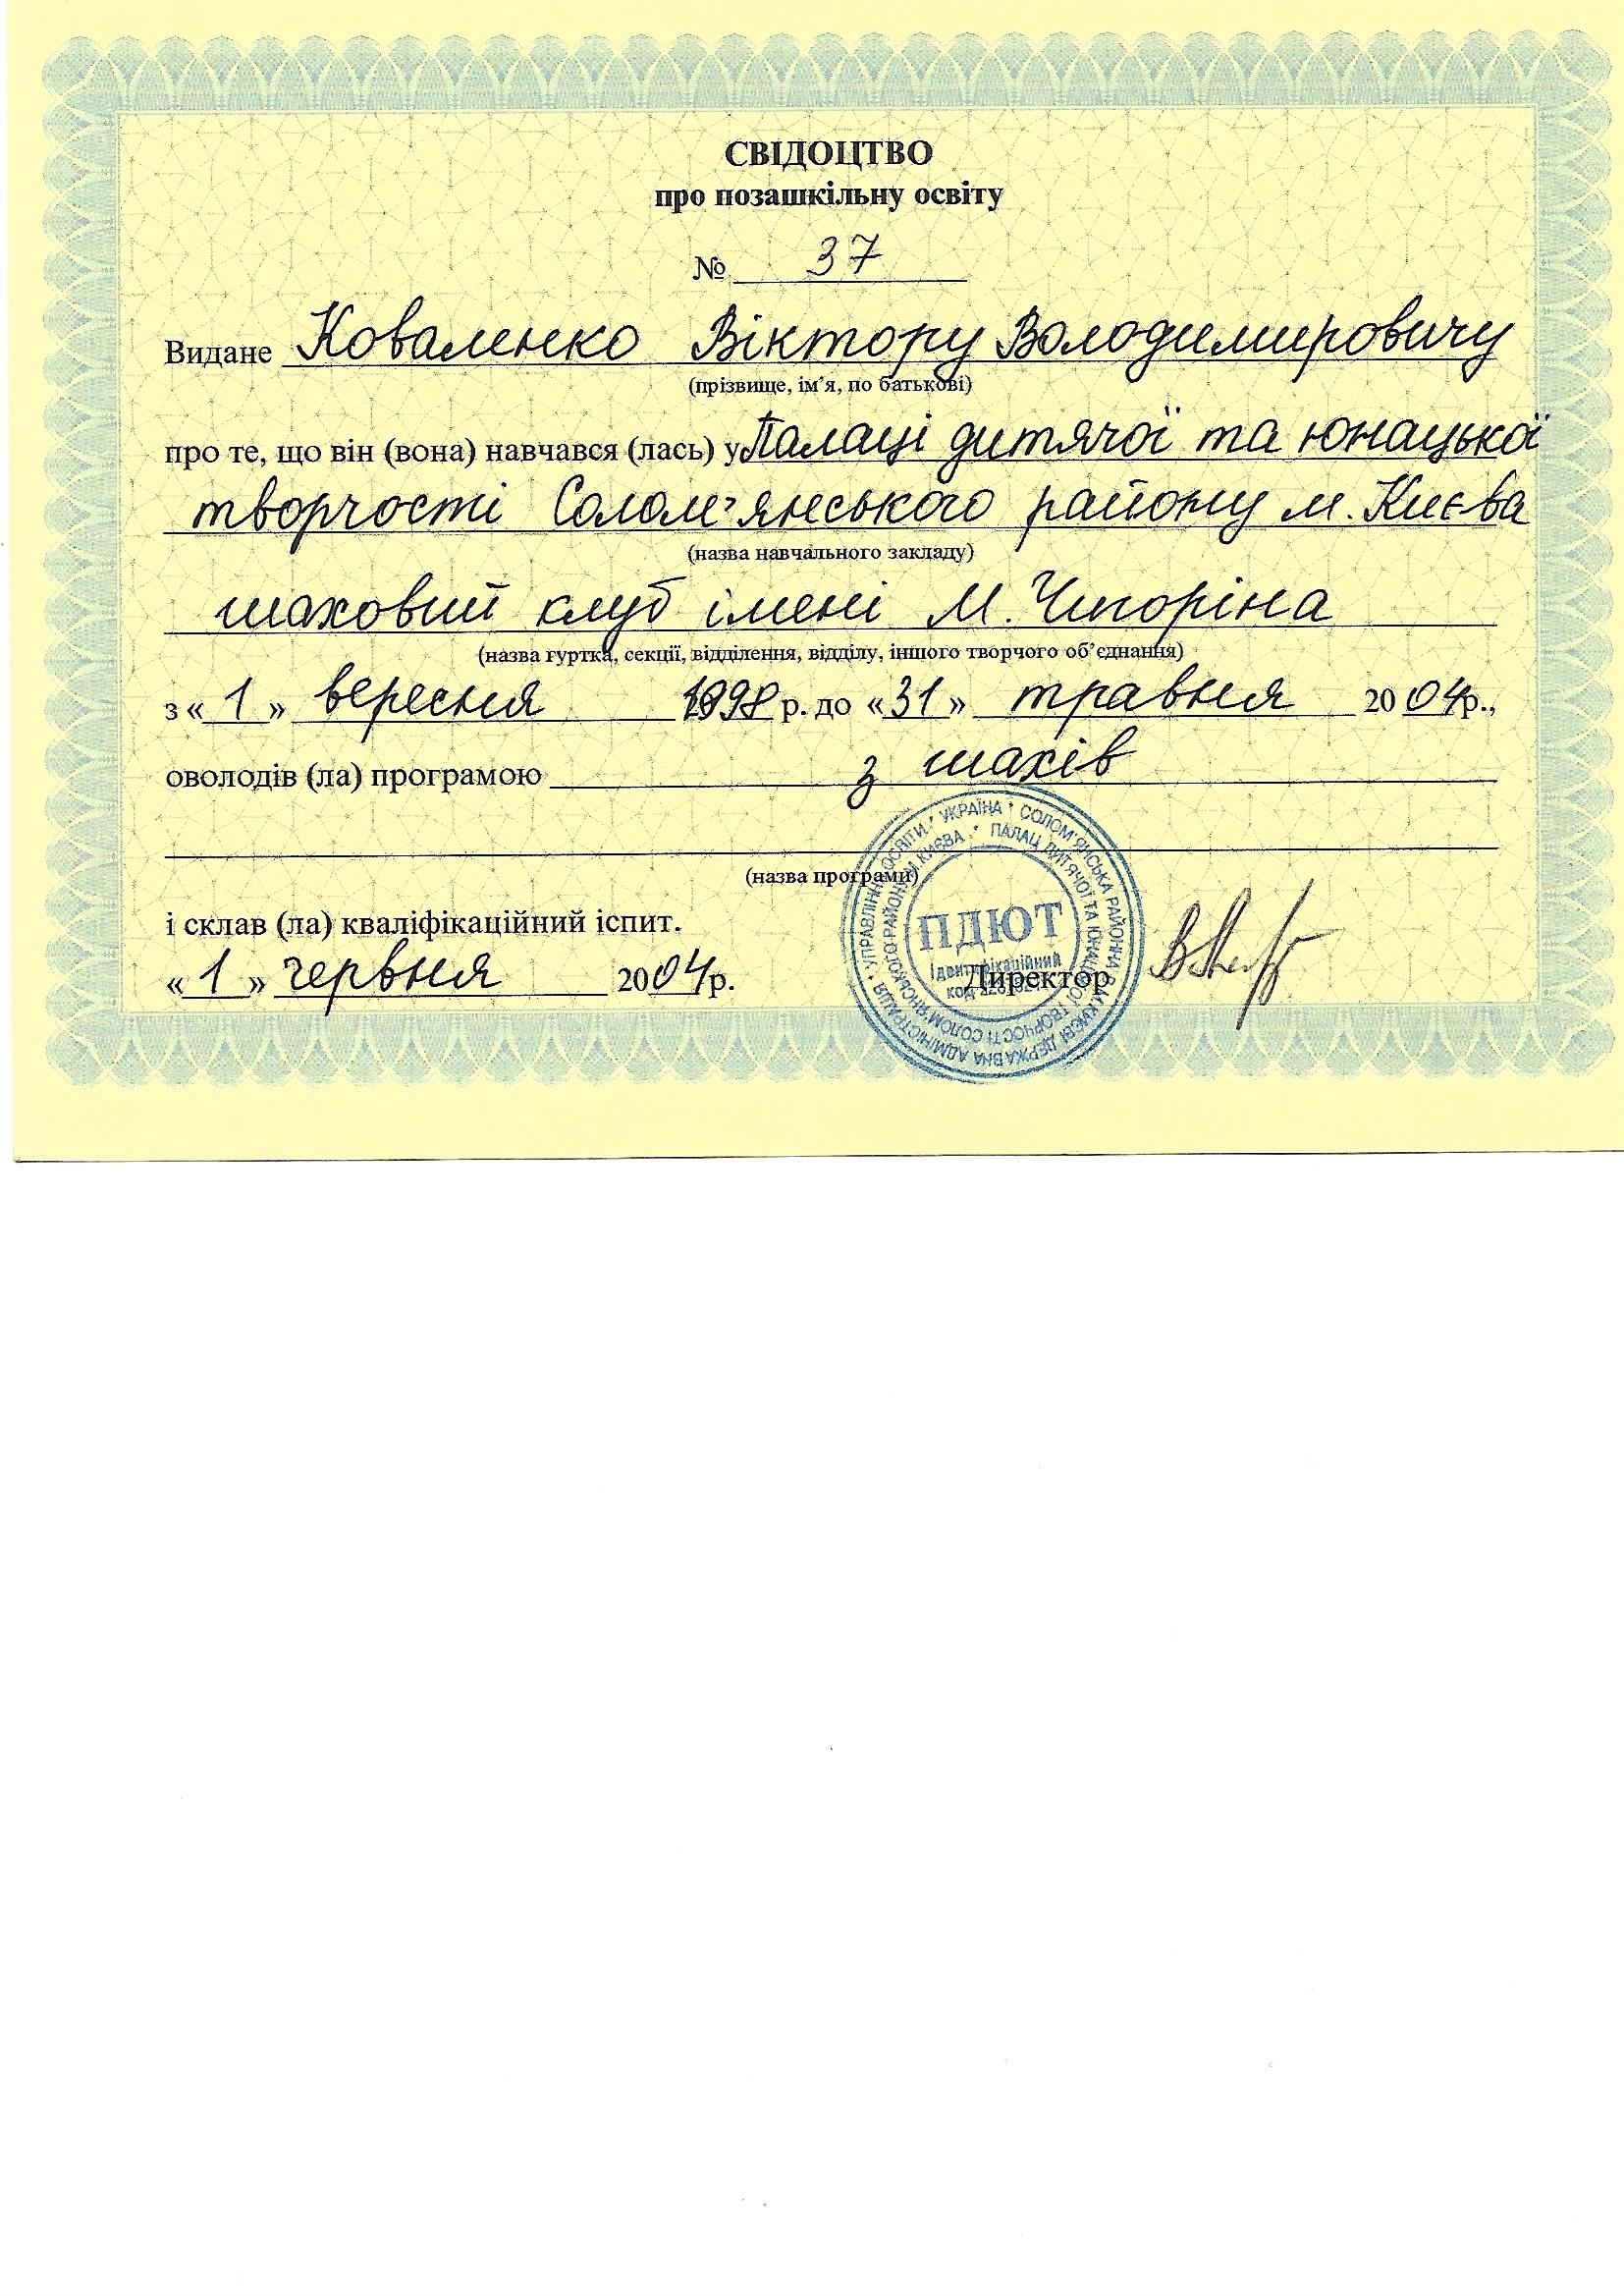 СВІДОЦТВО
про позашкільну освіту
№ 37
Видане Коваленко Віктору Володимировичу
(прізвище, ім’я, по батькові)
про те, що він (вона) навчався (лась) у Палаці дитячої та юнацької
творчості Солом'янського району м. Києва
(назва навчального закладу)
шаховий клуб імені М. Чигоріна
(назва гуртка, секції, відділення, відділу, іншого творчого об’єднання)
з « 1 » вересня 1998 р. до «31» травня 2004р.,
оволодів (ла) програмою з шахів
(назва програми)
і склав (ла) кваліфікаційний іспит.
« 1 » червня 2004р.
Директор
УКРАЇНА * СОЛОМ'ЯНСЬКА РАЙОННА В М. КИЄВІ ДЕРЖАВНА АДМІНІСТРАЦІЯ * УПРАВЛІННЯ ОСВІТИ *
ПАЛАЦ ДИТЯЧОЇ ТА ЮНАЦЬКОЇ ТВОРЧОСТІ СОЛОМ'ЯНСЬКОГО РАЙОНУ М.КИЄВА *
ПДЮТ
Ідентифікаційний
код